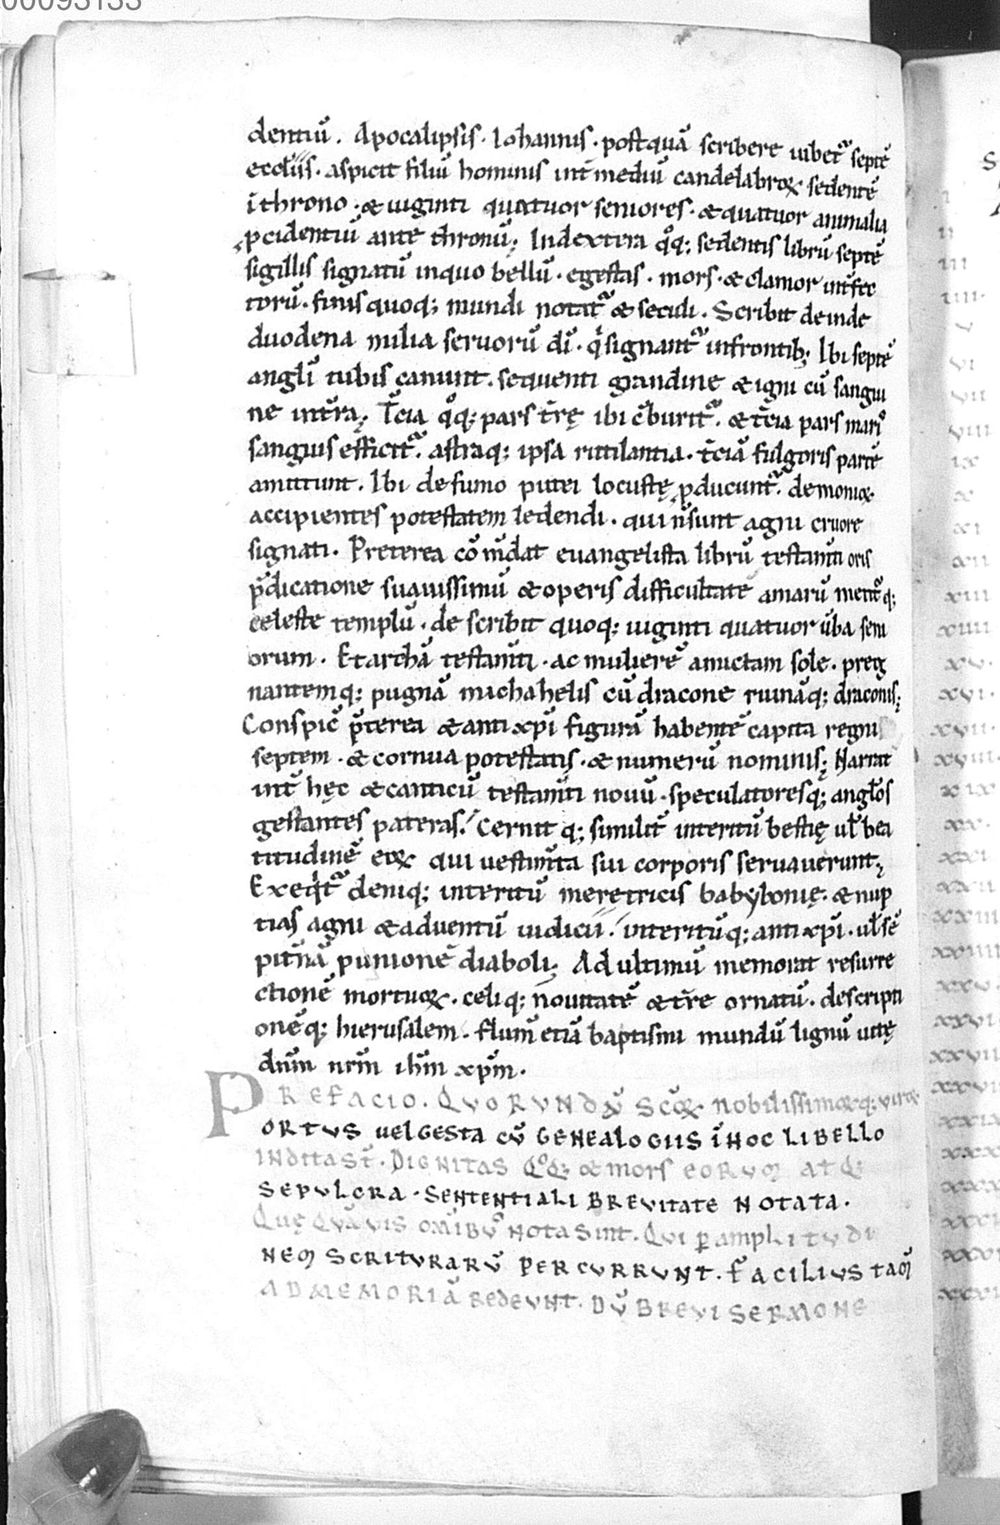 00093133
dentiū. Apocalipsis. Iohannis. postquā scribere iubet᷑ septē
ecclīis. aspicit filiū hominis int̄ mediū candelabroꝝ sedentē
ī throno. & uiginti quattuor seniores. & quatuor animalia
p̄cidentiū ante thronū; In dextera qͦq; sedentis librū septē
sigillis signatū in quo bellū. egestas. mors. & clamor int̄fec
torū. finis quoq; mundi notat᷑ & seculi. Scribit deinde
duodena milia seruorū dī. qͥ signant᷑ in frontib; Ibi septē
angl̄i tubis canunt. sequenti grandine & igni cū sangui
ne int̄ra; T̄cia qͦq; pars t̄rę ibi c̄burit᷑. & t̄cia pars maris
sanguis efficit᷑. astraq; ipsa rutilantia. t̄ciā fulgoris partē
amittunt. Ibi de fumo putei locustę ꝓducunt᷑. demonioꝝ
accipientes potestatem ledendi. qui n̄ sunt agni cruore
signati. Preterea cōm̄dat euangelista librū testam̄ti oris
p̄dicatione suauissimū & operis difficultate amarū
celeste templū. describit quoq; uiginti quatuor ūba seni
orum. Et archā testam̄ti. ac mulierē amictam sole. preg
nantemq; pugnā michahelis cū dracone ruināq; draconis;
Conspic̄ p̄terea & anti xp̄i figurā habentē capita regni
septem. & cornua potestatis. & numerū nominis; Narrat
int̄ hęc & canticū testam̄ti nouū. speculatoresq; angl̄os
gestantes pateras. Cernit q; similit̄ interitū bestię ul̄ bea
titudinē eoꝝ qui uestim̄ta sui corporis seruauerunt;
Exeqͥt᷑ deniq; interitū meretricis babylonię. & nup
tias agni & aduentū iudicii. interitūq; anti xp̄i. ul̄ sē
pit̄nā punionē diaboli; Ad ultimū memorat resurre
ctionē mortuoꝝ. celiq; nouitatē & t̄re ornatū. descripti
onēq; hierusalem. flum̄ etiā baptismi mundū lignū uitę
dn̄m nr̄m ihm̄ xp̄m.
PREFACIO. QUORUNDĀ SC̄OꝜ nobilissimoꝝq; viroꝝ
ORTVS uel GESTA CŪ GENEALOGIIS ĪHOC LIBELLO
INDITA ST̄. DIGNITAS QͦQ; & mors EORVM ATQ;
SEPVLCRA. SENTENTIALI BREVITATE NOTATA.
QUĘ QUĀVIS OM̄IBVˀ NOTA Sint. QVI ꝑ amplitvdi
NEM SCRITVRARŪ PERCURRUNT. FACILIVS TAM̄
AD MEMORIĀ REDEUNT. DŪ BREVI SERMONE